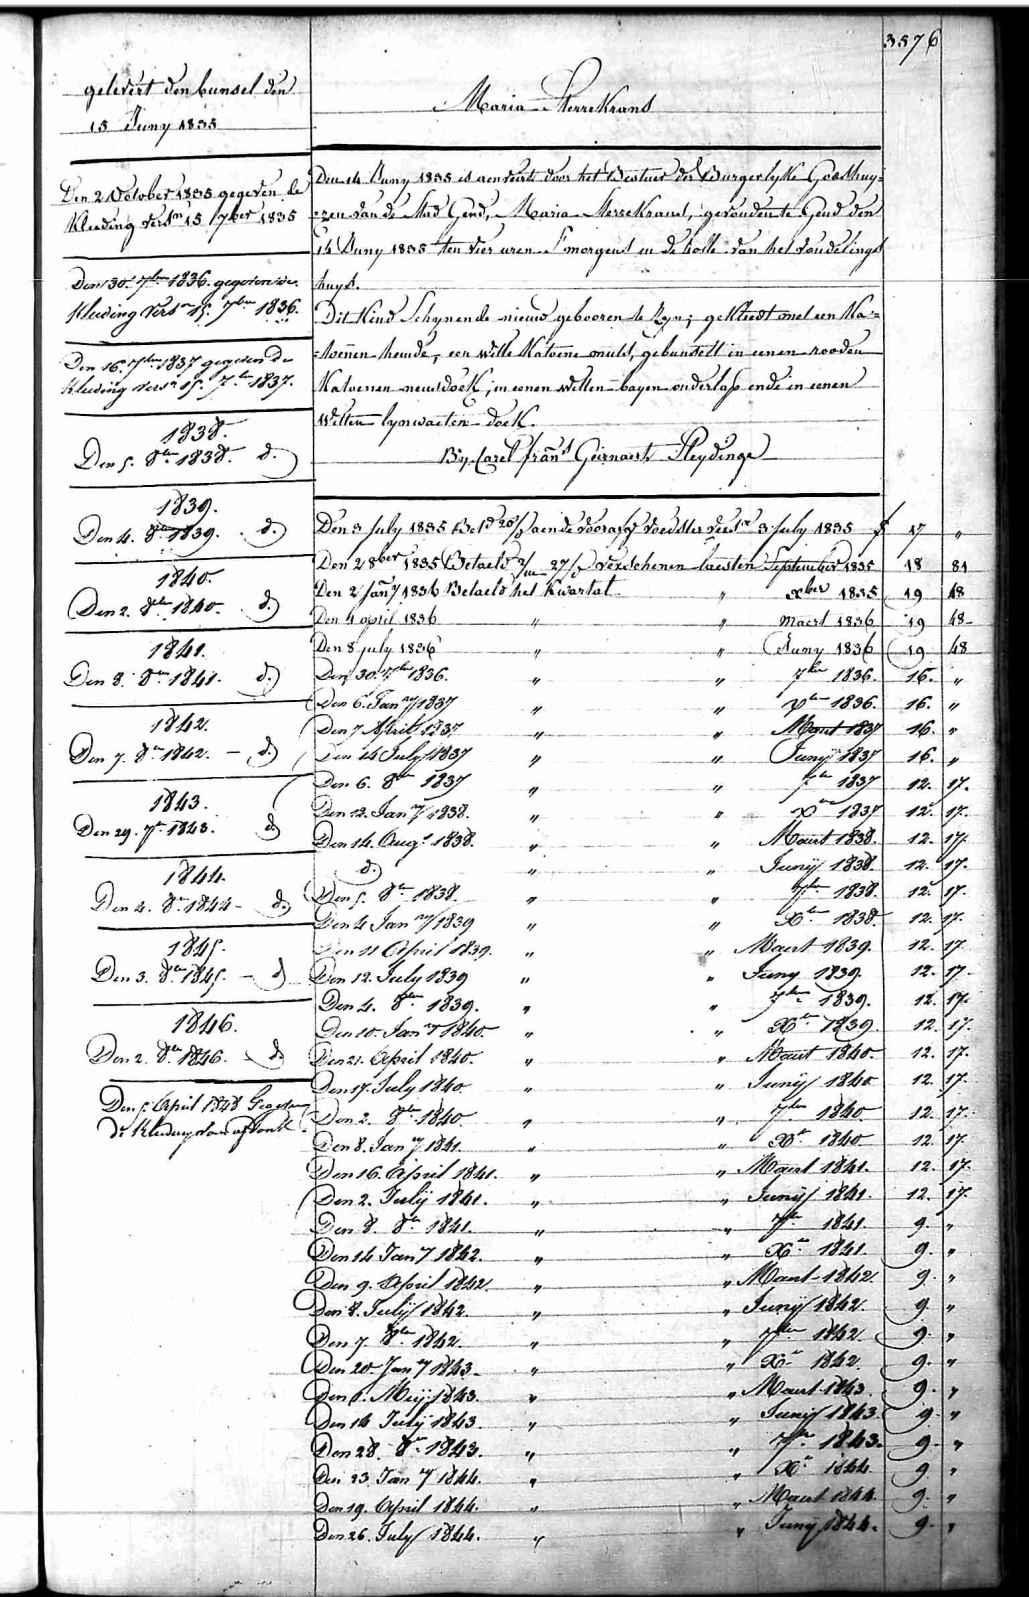 3576
gelevert den bunsel den
15 Juny 1835
Maria Sterrekrans
Den 2 October 1835 gegeven de
Kleeding vers.n 15 7ber 1835
Den 30. 7ber 1836. gegeven de
Kleeding vers.n 15. 7ber 1836.
Den 16. 7ber 1837 gegeven de
Kleeding vers.n 15. 7ber 1837.
1838.
Den 5. 8ber 1838. d.o
1839.
Den 4. 8ber 1839. d.o
1840.
Den 2. 8ber 1840. d.o
1841.
Den 8. 8ber 1841. d.o
1842.
Den 7. 8ber 1842. – d.o
1843.
Den 29. 7r 1843. d.o
1844.
Den 4. 8r 1844 – d.o
1845.
Den 3. 8ber 1845. – d.o
1846.
Den 2. 8ber 1846. d.o
Den 5. April 1848 Gegeven
de Kleeding
Den 14 Juny 1835 is aenveirt door het Bestuer der Burgerlyke Godshuy=
=zen van de Stad Gend, Maria Sterrekrans, gevonden te Gend den
14 Juny 1835 ten vier uren S'morgens in de holle van het vondelings
huys.
Dit Kind Schynende nieuw gebooren te Zyn; gekleedt met een Ka=
=toenen hemde, een witte Katoene muts, gebunselt in eenen rooden
Katoenen neusdoek, in eenen witten bayen onderlap ende in eenen
Witten lynwaeten doek.
By Carel frans Geirnaert Sleydinge
Den 3 July 1835 Bet.d 20/0 aen de voorz. voedster vers.n 3 July 1835 f 17 "
Den 2 8ber 1835 Betaeld 2/m 27/d verschenen laesten September 1835 18 81
Den 2 Jan.y 1836 Betaeld het Kwartal " xber 1835 19 48
Den 4 april 1836 " " Maert 1836 19 48
Den 8 july 1836 " " Juny 1836 19 48
Den 30. 7ber 1836. " " 7ber 1836. 16. "
Den 6. Jan.y 1837 " " xber 1836. 16. "
Den 7 April 1837 " " Maert 1837 16. "
Den 14 July 1837 " " Junij 1837 16. "
Den 6. 8ber 1837 " " 7ber 1837 12. 17.
Den 12. Jan.y 1838. " " xber 1837 12. 17.
Den 14. Aug.t 1838. " " Maert 1838. 12. 17.
d.o " " Junij 1838. 12. 17.
Den 5. 8ber 1838. " " 7ber 1838. 12. 17.
Den 4 Jan.y 1839 " " xber 1838. 12. 17.
Den 11 April 1839. " " Maert 1839. 12. 17.
Den 12. July 1839 " " Juny 1839. 12. 17.
Den 4. 8ber 1839. " " 7ber 1839. 12. 17.
Den 10. Jan.y 1840. " " xber 1839. 12. 17.
Den 21. April 1840. " " Maert 1840. 12. 17.
Den 17. July 1840 " " Junij 1840 12. 17.
Den 2. 8ber 1840. " " 7ber 1840 12. 17.
Den 8. Jan.y 1841. " " xber 1840 12. 17.
Den 16. April 1841. " " Maert 1841. 12. 17.
Den 2. Julij 1841. " " Junij 1841. 12. 17.
Den 8. 8ber 1841. " " 7ber 1841. 9. "
Den 14 Jan.y 1842. " " xber 1841. 9. "
Den 9. April 1842. " " Maert 1842. 9. "
Den 8. Julij 1842. " " Junij 1842. 9. "
Den 7. 8ber 1842. " " 7ber 1842. 9. "
Den 20 Jan.y 1843. " " xber 1842. 9. "
Den 6. Meij 1843. " " Maert 1843. 9. "
Den 14 Julij 1843. " " Junij 1843. 9. "
Den 28. 8ber 1843. " " 7ber 1843. 9. "
Den 23. Jan.y 1844. " " xber 1844. 9. "
Den 19. April 1844. " " Maert 1844. 9. "
Den 26. July 1844. " " Junij 1844. 9. "